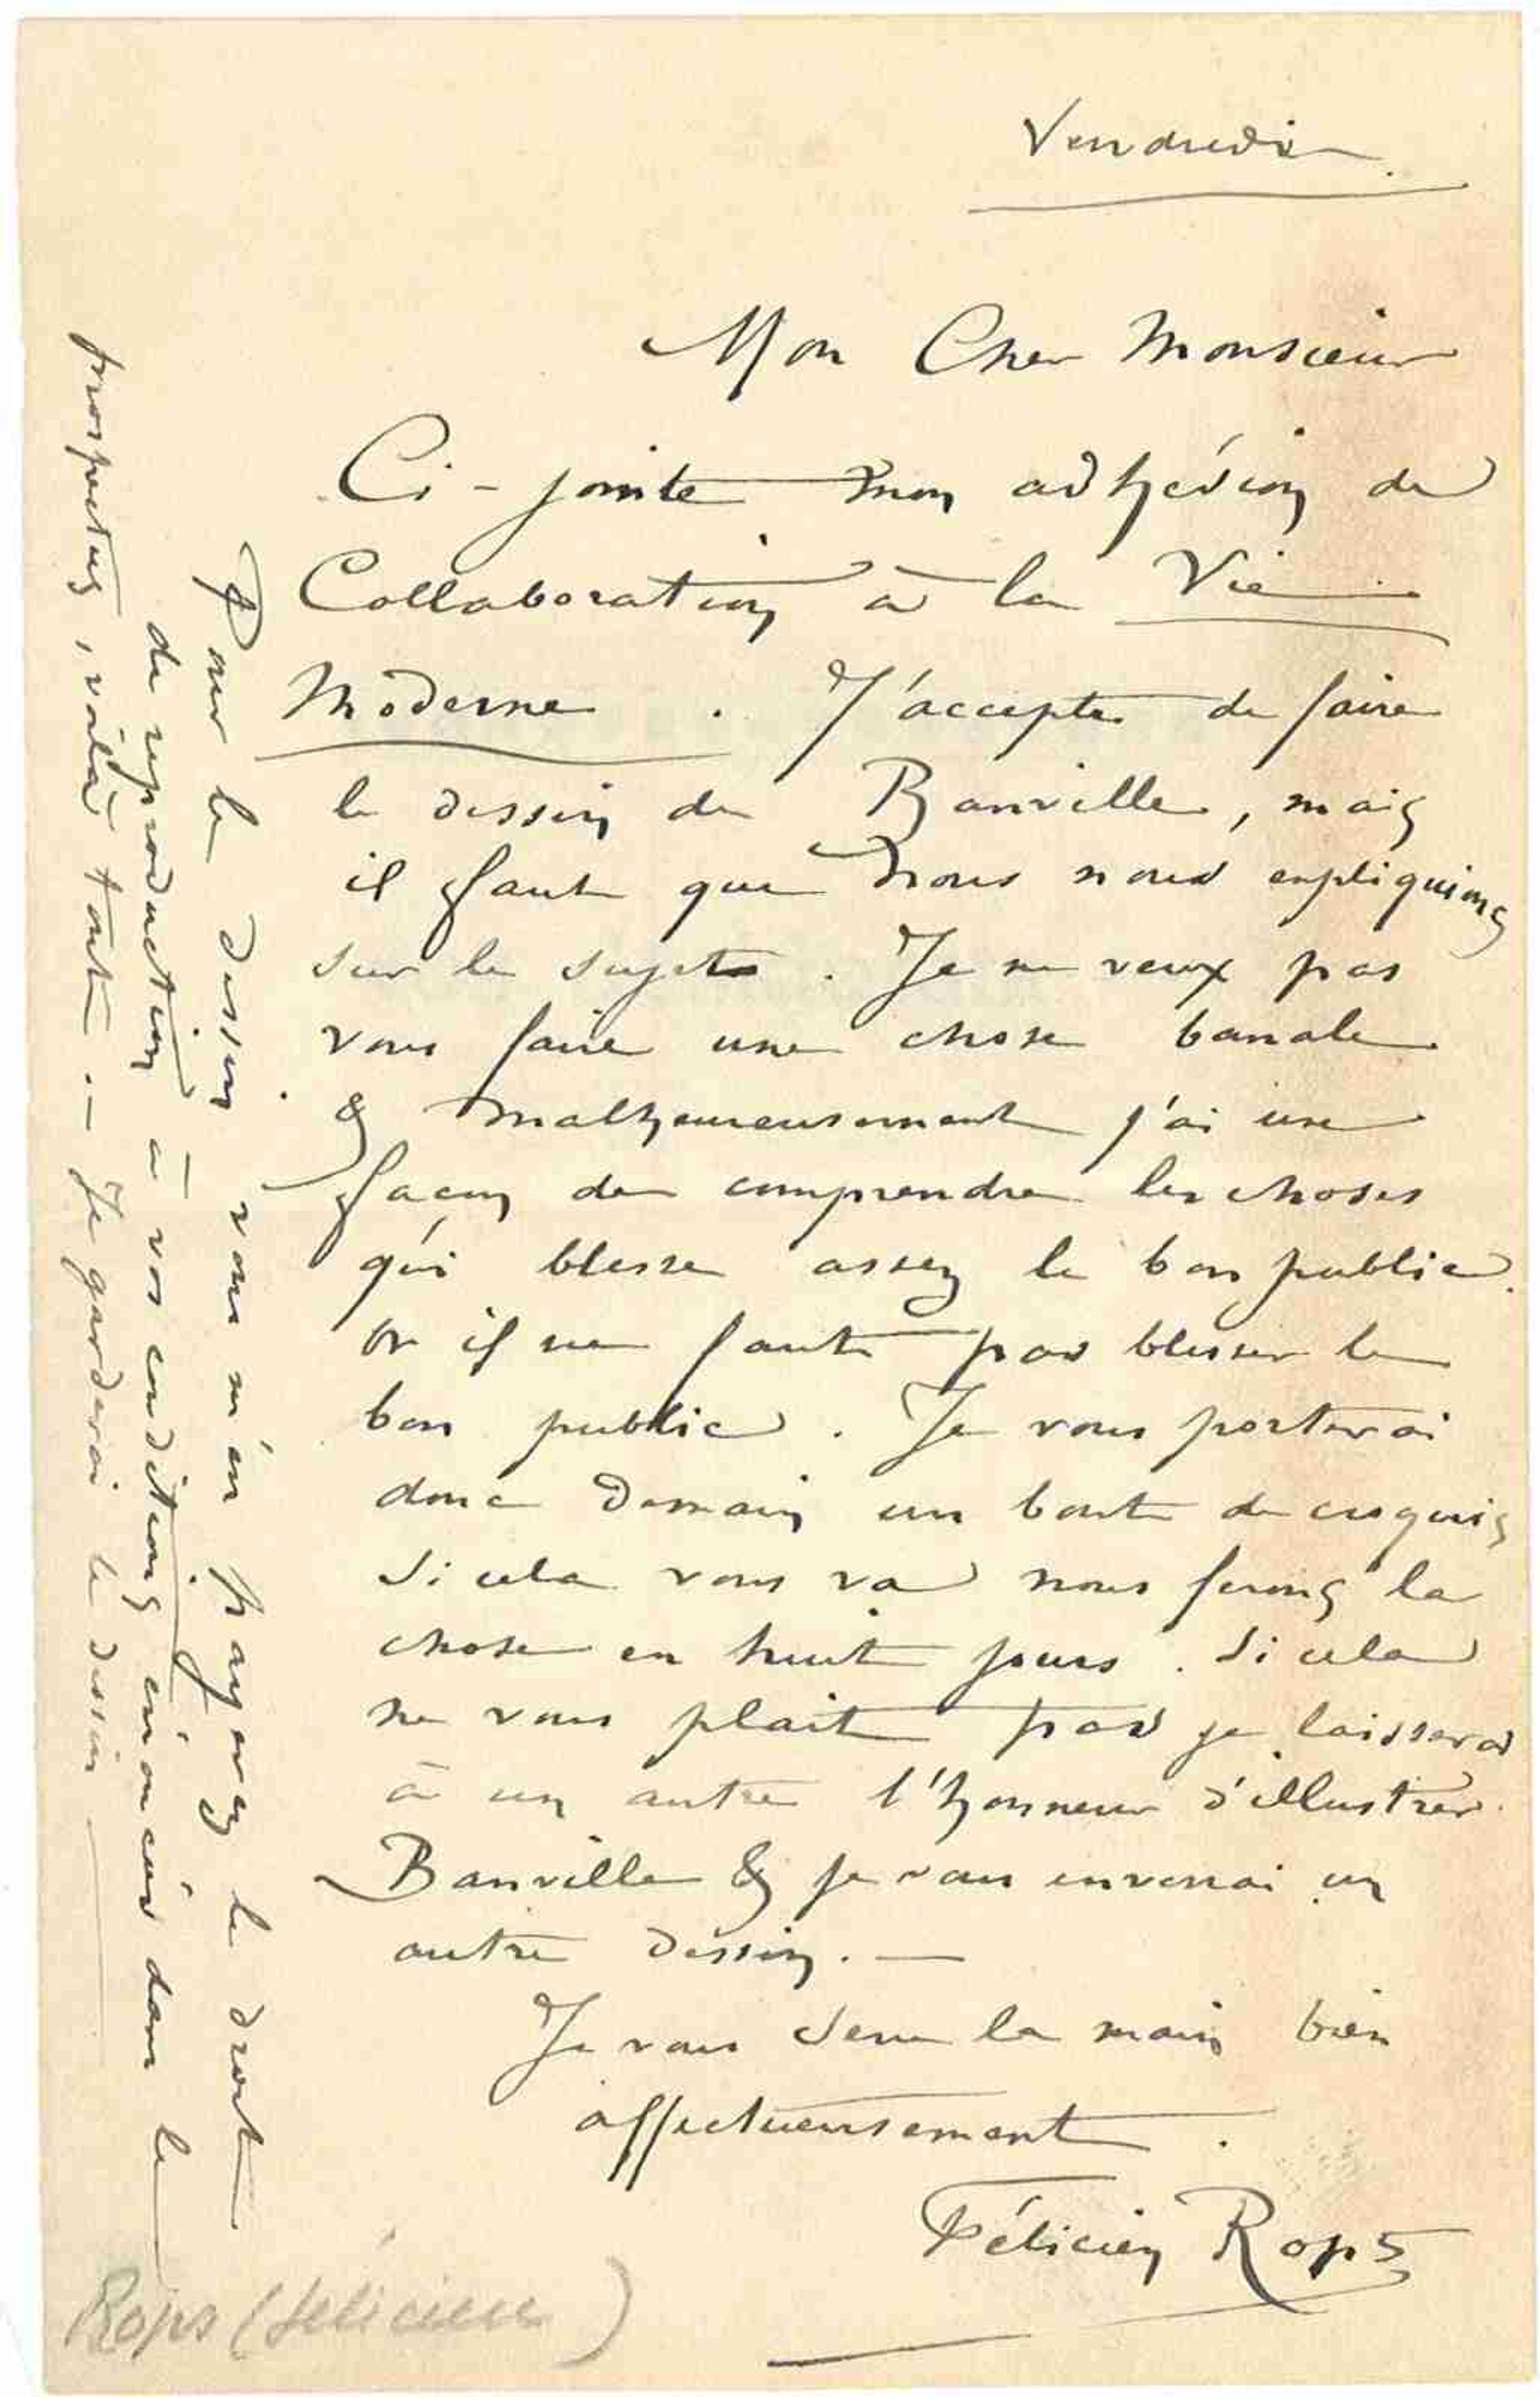 Vendredi
Mon Cher Monsieur
Ci-jointe mon adhésion de
Collaboration à la Vie
Moderne. J'accepte de faire
le dessin de Banville, mais
il faut que nous nous expliquions
sur le sujet. Je ne veux pas
vous faire une chose banale
& malheureusement j'ai une
façon de comprendre les choses
qui blesse assez le bon public.
or il ne faut pas blesser le
bon public. Je vous porterai
donc demain un bout de croquis
Si cela vous va nous ferons la
chose en huit jours. Si cela
ne vous plait pas je laisserai
à un autre l'honneur d'illustrer
Banville & je vous enverrai un
autre dessin. —
Je vous serre la main bien
affectueusement.
Félicien Rops
Pour le dessin vous m'en payerez le droit
de reproduction à vos conditions énoncées dans le
prospectus, voilà tout. — Je garderai le dessin
Rops (félicien)